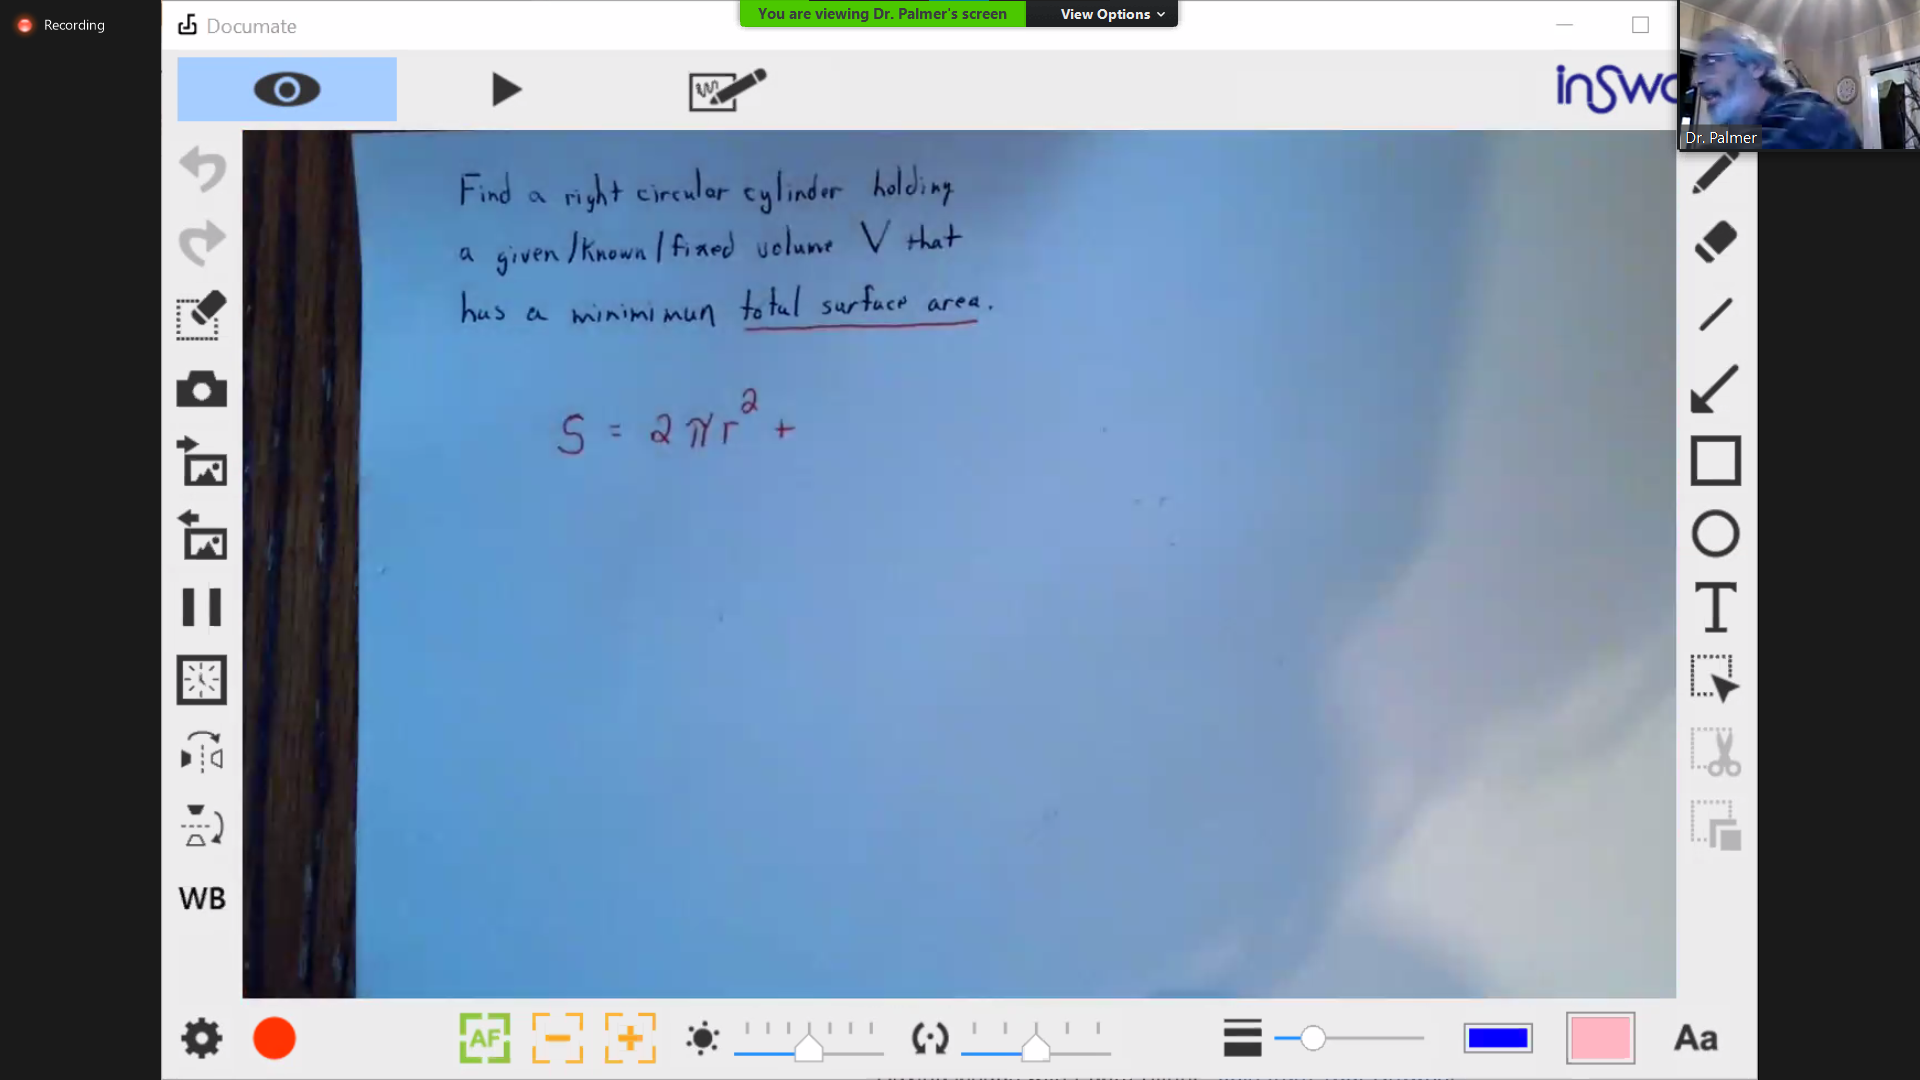 Recording
Documate
You are viewing Dr. Palmer's screen
View Options
inSwo
Dr. Palmer
Find a right circular cylinder holding
a given/known/fixed volume V that
has a minimimun total surface area.
S = 2πr² +
WB
AF
T
Aa